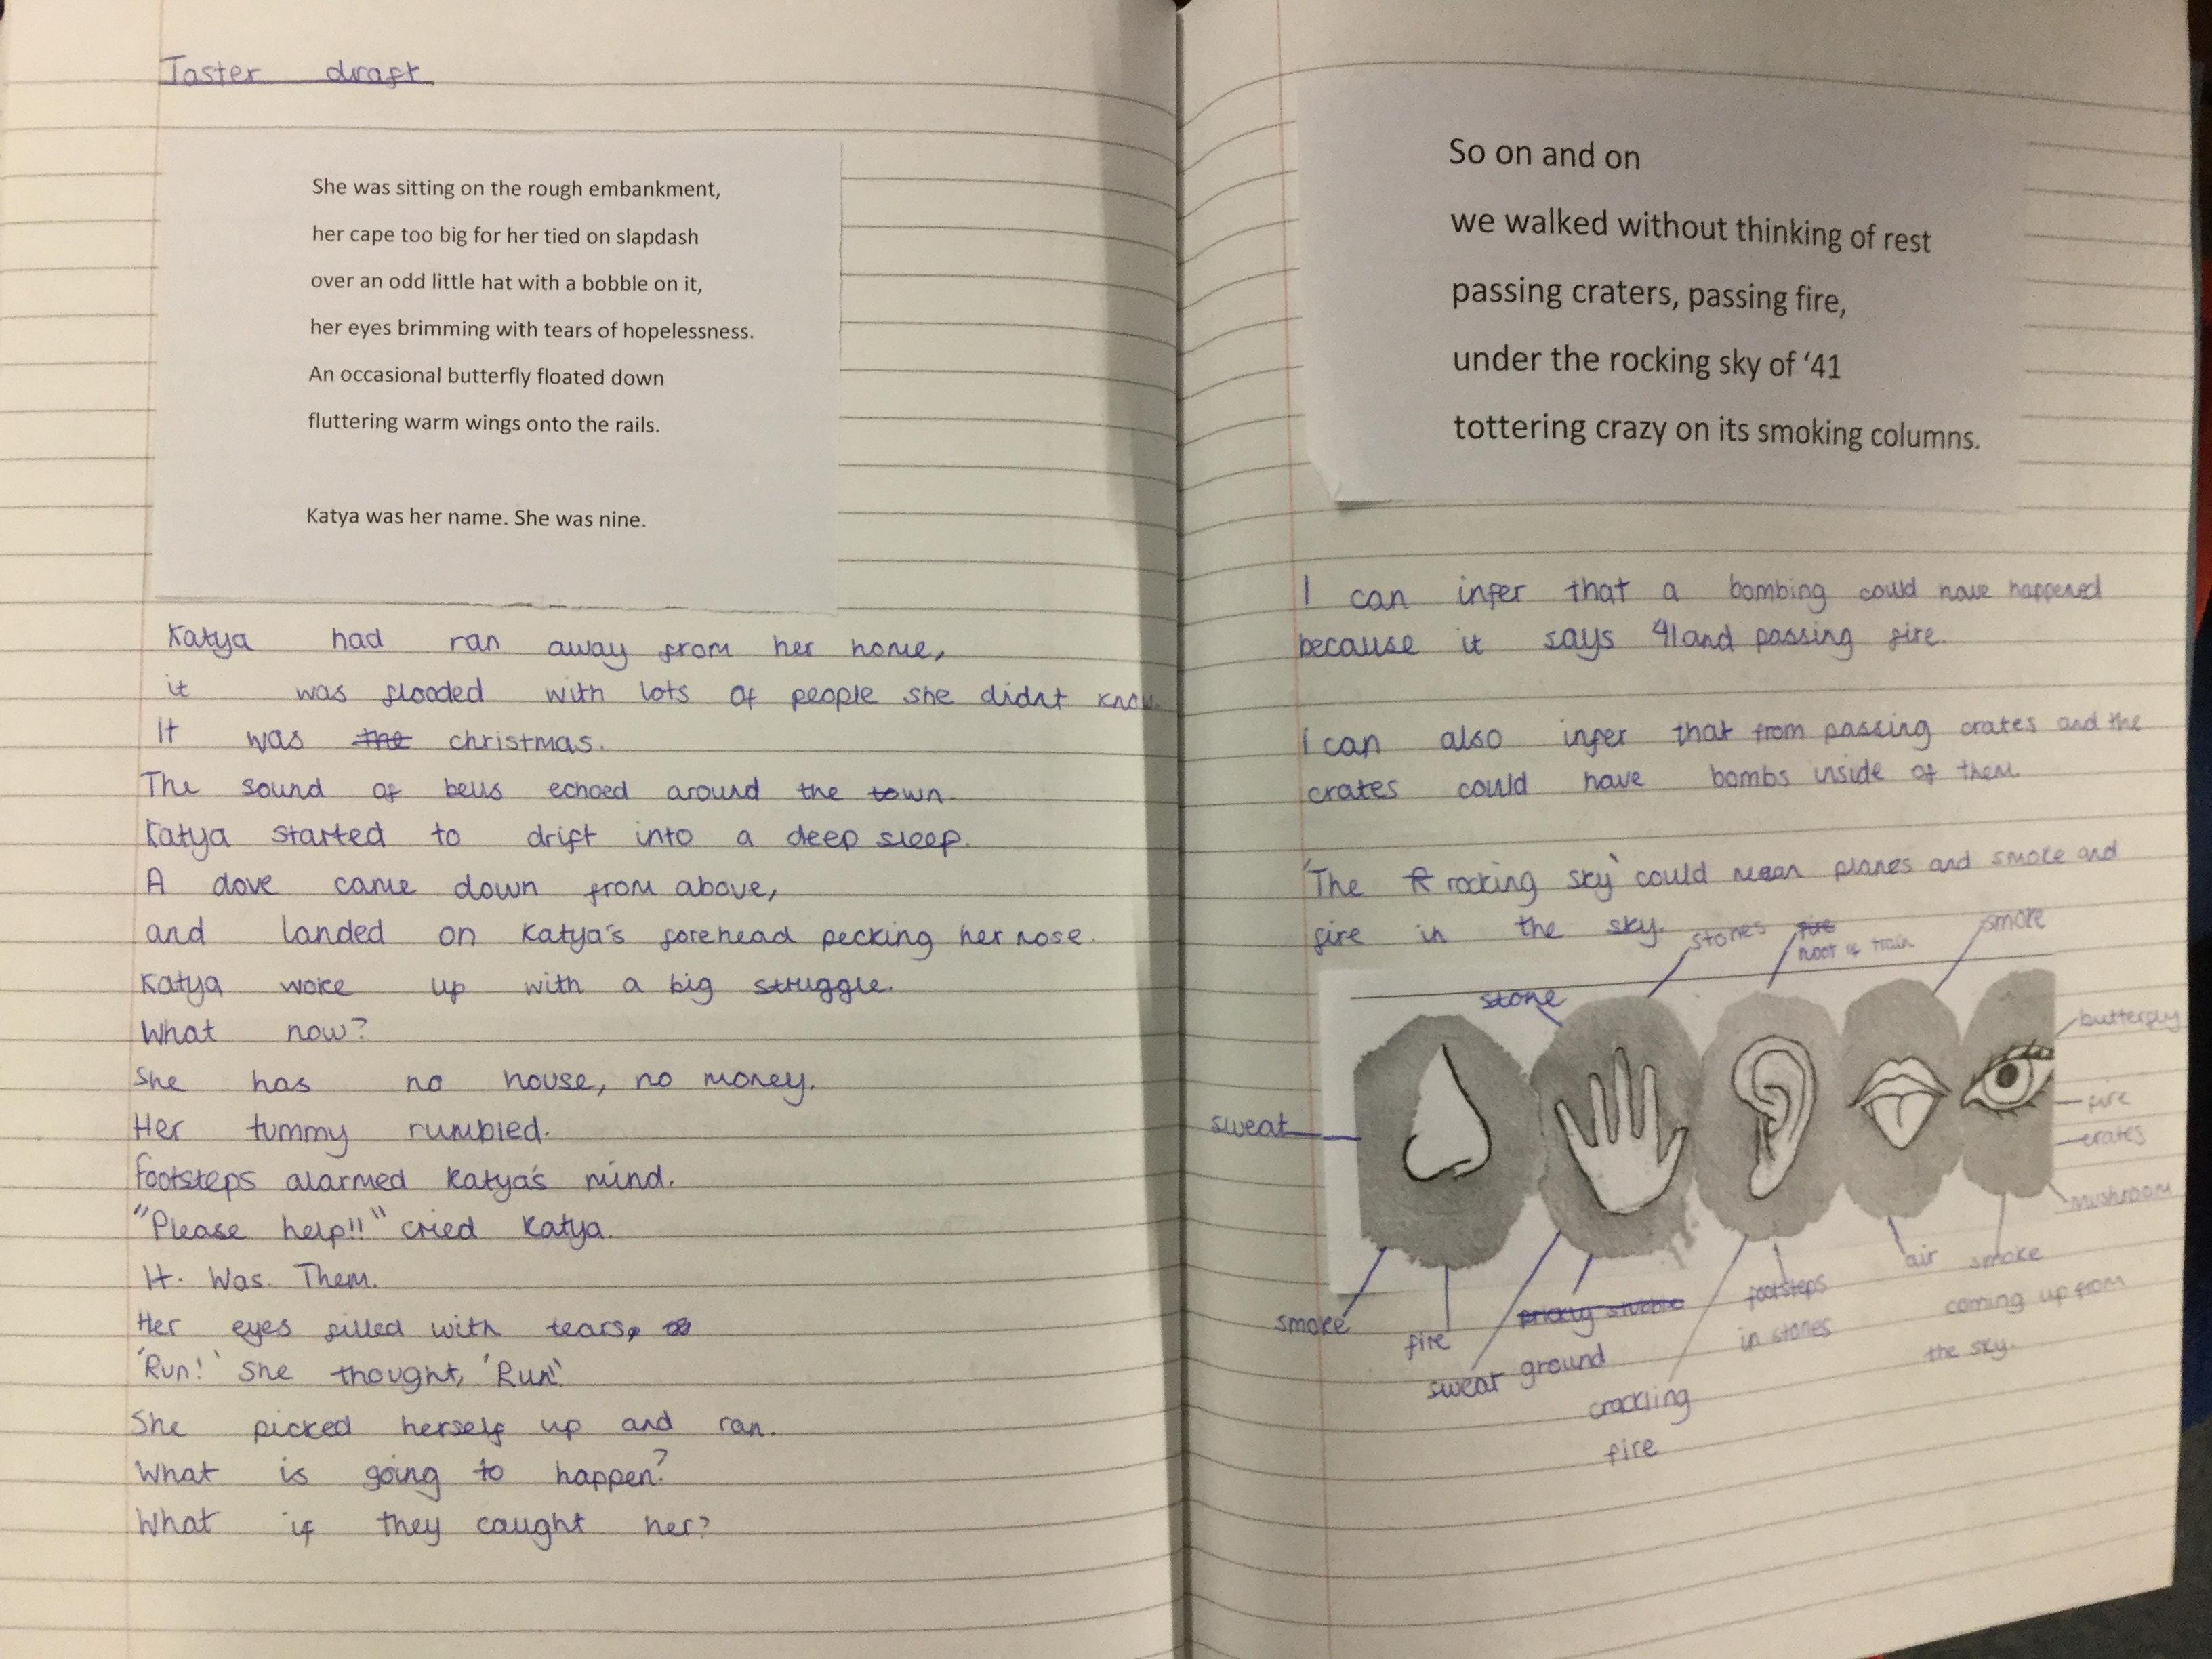 Taster draft
She was sitting on the rough embankment,
her cape too big for her tied on slapdash
over an odd little hat with a bobble on it,
her eyes brimming with tears of hopelessness.
An occasional butterfly floated down
fluttering warm wings onto the rails.
Katya was her name. She was nine.
Katya had ran away from her home,
it was flooded with lots of people she didnt know.
It was the christmas.
The sound of bells echoed around the town.
Katya started to drift into a deep sleep.
A dove came down from above,
and landed on Katya's forehead pecking her nose.
Katya woke up with a big struggle.
What now?
She has no house, no money.
Her tummy rumbled.
footsteps alarmed Katya's mind.
"Please help!!" cried Katya.
It. Was. Them.
Her eyes filled with tears,
'Run!' She thought, 'Run!'
She picked herself up and ran.
What is going to happen?
What if they caught her?
So on and on
we walked without thinking of rest
passing craters, passing fire,
under the rocking sky of '41
tottering crazy on its smoking columns.
I can infer that a bombing could have happened
because it says 41 and passing fire.
I can also infer that from passing crates and the
crates could have bombs inside of them
'The rocking sky' could mean planes and smoke and
fire in the sky.
stones
fire
hoot of train
smoke
stone
butterfly
fire
crates
mushroom
sweat
smoke
fire
sweat
prickly stubble
ground
crackling
fire
footsteps
in stones
air
smoke
coming up from
the sky.